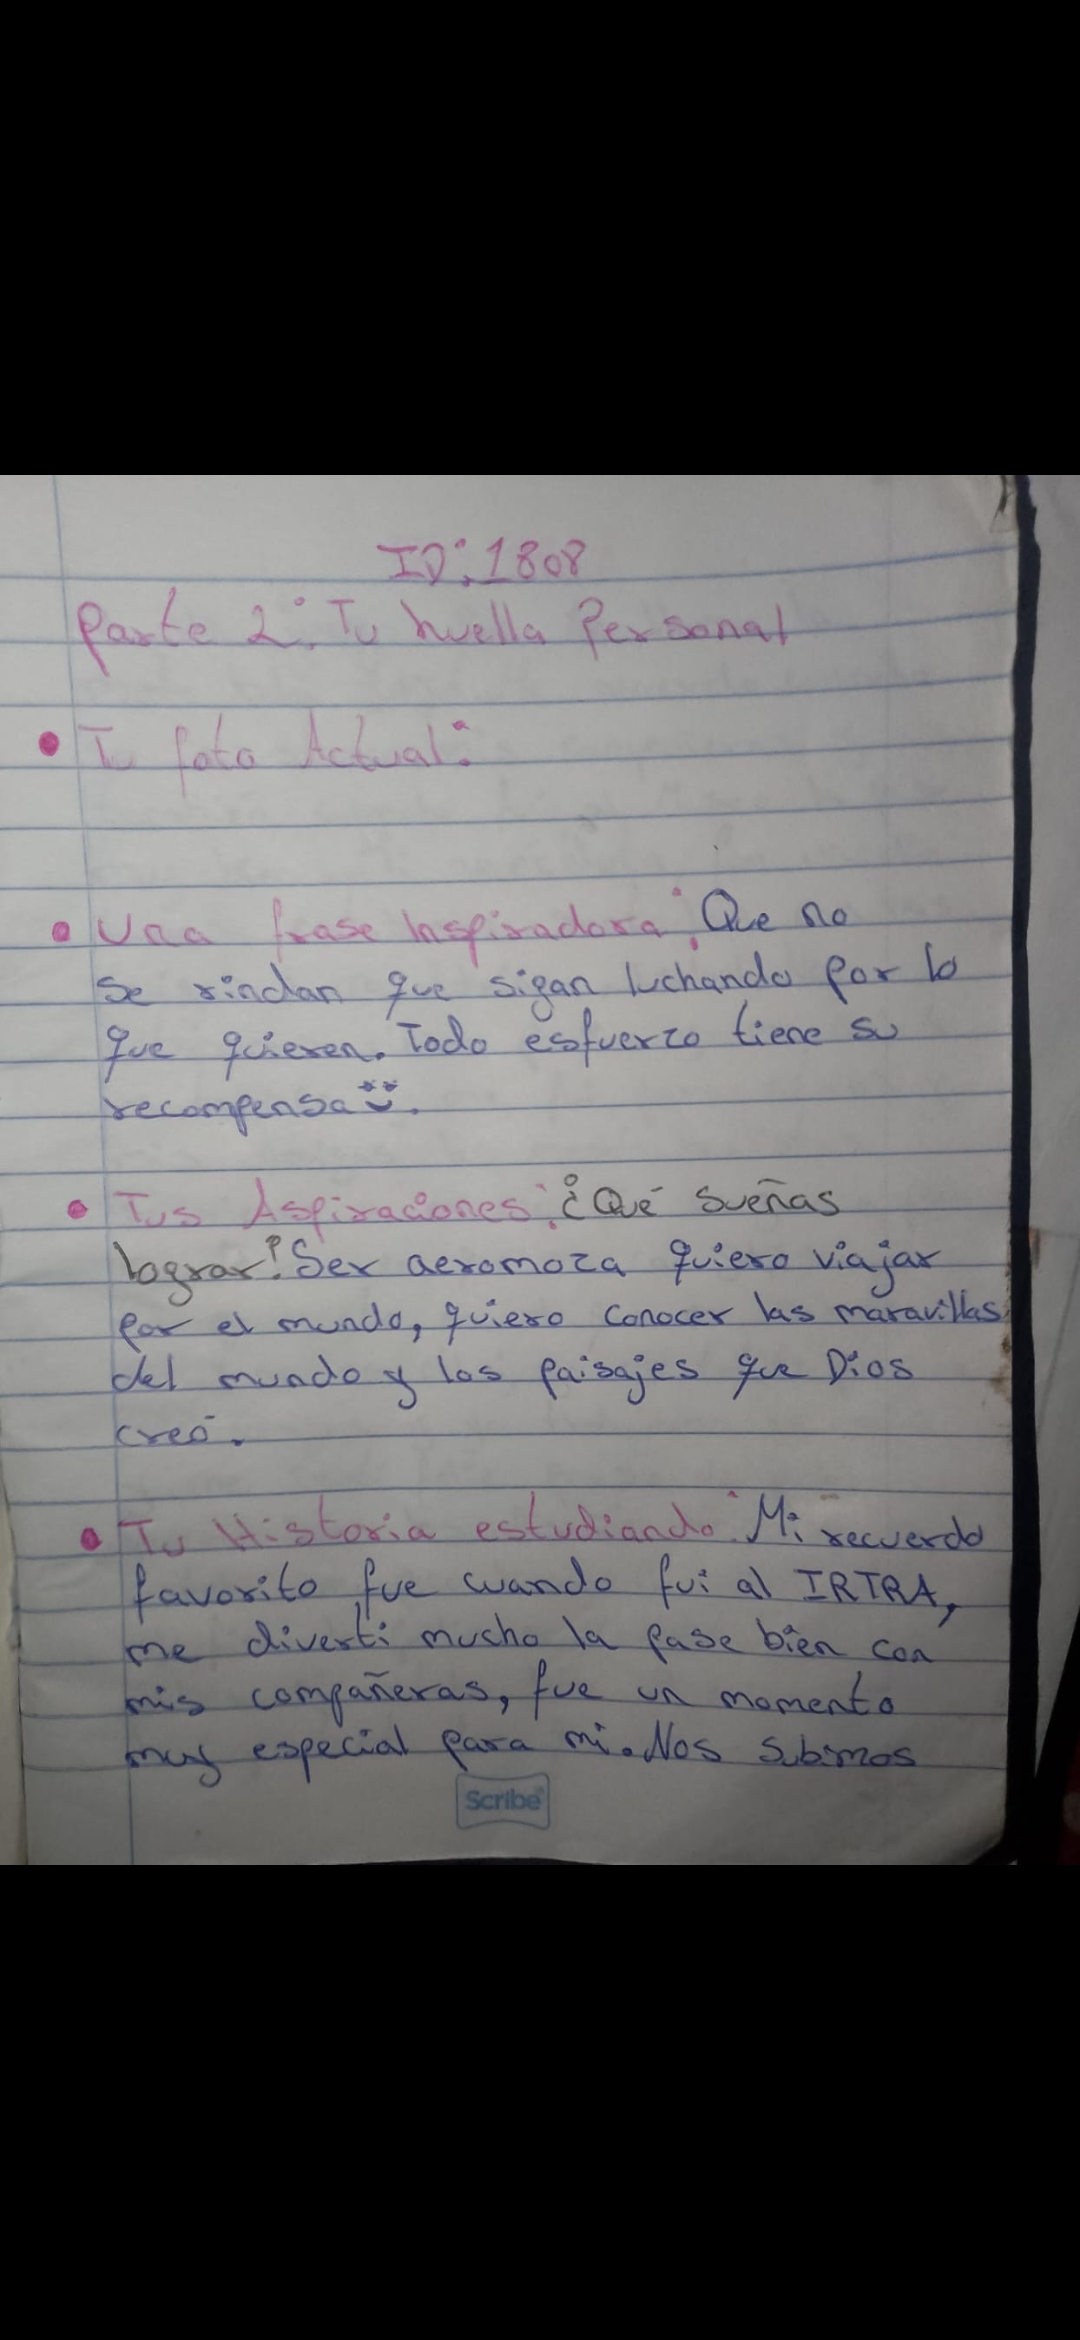 ID: 1808
Parte 2: Tu huella Personal
• Tu foto Actual:
• Una frase Inspiradora: Que no
se rindan que sigan luchando por lo
que quieren. Todo esfuerzo tiene su
recompensa.
• Tus Aspiraciones: ¿Qué sueñas
lograr? Ser aeromoza quiero viajar
por el mundo, quiero conocer las maravillas
del mundo y los paisajes que Dios
creó.
• Tu Historia estudiando: Mi recuerdo
favorito fue cuando fui al IRTRA,
me divertí mucho la pase bien con
mis compañeras, fue un momento
muy especial para mi. Nos subimos
Scribe